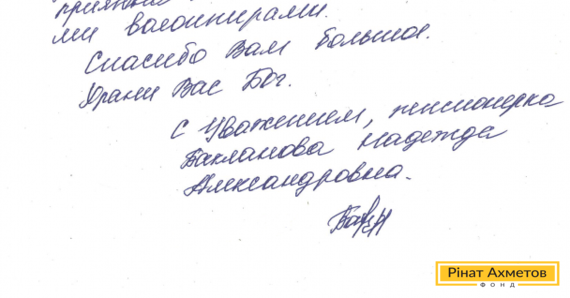 приятны
ми волонтирами.
Спасибо Вам большое.
Храни Вас Бог.
С Уважением, пенсионерка
Бакланова Надежда
Александровна.
Рінат Ахметов
ФОНД